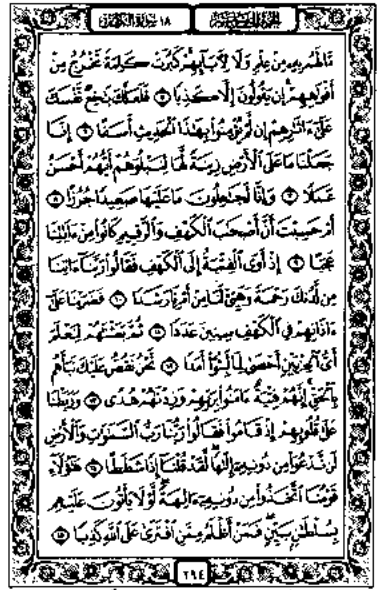 الجزء الخامس عشر ١٨ سورة الكهف
مَّا لَهُم بِهِۦ مِنْ عِلْمٍ وَلَا لِءَابَآئِهِمْ كَبُرَتْ كَلِمَةً تَخْرُجُ مِنْ
أَفْوَٰهِهِمْ إِن يَقُولُونَ إِلَّا كَذِبًا ٥ فَلَعَلَّكَ بَٰخِعٌ نَّفْسَكَ
عَلَىٰٓ ءَاثَٰرِهِمْ إِن لَّمْ يُؤْمِنُوا۟ بِهَٰذَا ٱلْحَدِيثِ أَسَفًا ٦ إِنَّا
جَعَلْنَا مَا عَلَى ٱلْأَرْضِ زِينَةً لَّهَا لِنَبْلُوَهُمْ أَيُّهُمْ أَحْسَنُ
عَمَلًا ٧ وَإِنَّا لَجَٰعِلُونَ مَا عَلَيْهَا صَعِيدًا جُرُزًا ٨
أَمْ حَسِبْتَ أَنَّ أَصْحَٰبَ ٱلْكَهْفِ وَٱلرَّقِيمِ كَانُوا۟ مِنْ ءَايَٰتِنَا
عَجَبًا ٩ إِذْ أَوَى ٱلْفِتْيَةُ إِلَى ٱلْكَهْفِ فَقَالُوا۟ رَبَّنَآ ءَاتِنَا
مِن لَّدُنكَ رَحْمَةً وَهَيِّئْ لَنَا مِنْ أَمْرِنَا رَشَدًا ١٠ فَضَرَبْنَا عَلَىٰٓ
ءَاذَانِهِمْ فِى ٱلْكَهْفِ سِنِينَ عَدَدًا ١١ ثُمَّ بَعَثْنَٰهُمْ لِنَعْلَمَ
أَىُّ ٱلْحِزْبَيْنِ أَحْصَىٰ لِمَا لَبِثُوٓا۟ أَمَدًا ١٢ نَّحْنُ نَقُصُّ عَلَيْكَ نَبَأَهُم
بِٱلْحَقِّ إِنَّهُمْ فِتْيَةٌ ءَامَنُوا۟ بِرَبِّهِمْ وَزِدْنَٰهُمْ هُدًى ١٣ وَرَبَطْنَا
عَلَىٰ قُلُوبِهِمْ إِذْ قَامُوا۟ فَقَالُوا۟ رَبُّنَا رَبُّ ٱلسَّمَٰوَٰتِ وَٱلْأَرْضِ
لَن نَّدْعُوَا۟ مِن دُونِهِۦٓ إِلَٰهًا لَّقَدْ قُلْنَآ إِذًا شَطَطًا ١٤ هَٰٓؤُلَآءِ
قَوْمُنَا ٱتَّخَذُوا۟ مِن دُونِهِۦٓ ءَالِهَةً لَّوْلَا يَأْتُونَ عَلَيْهِم
بِسُلْطَٰنٍۭ بَيِّنٍ فَمَنْ أَظْلَمُ مِمَّنِ ٱفْتَرَىٰ عَلَى ٱللَّهِ كَذِبًا ١٥
٢٩٤